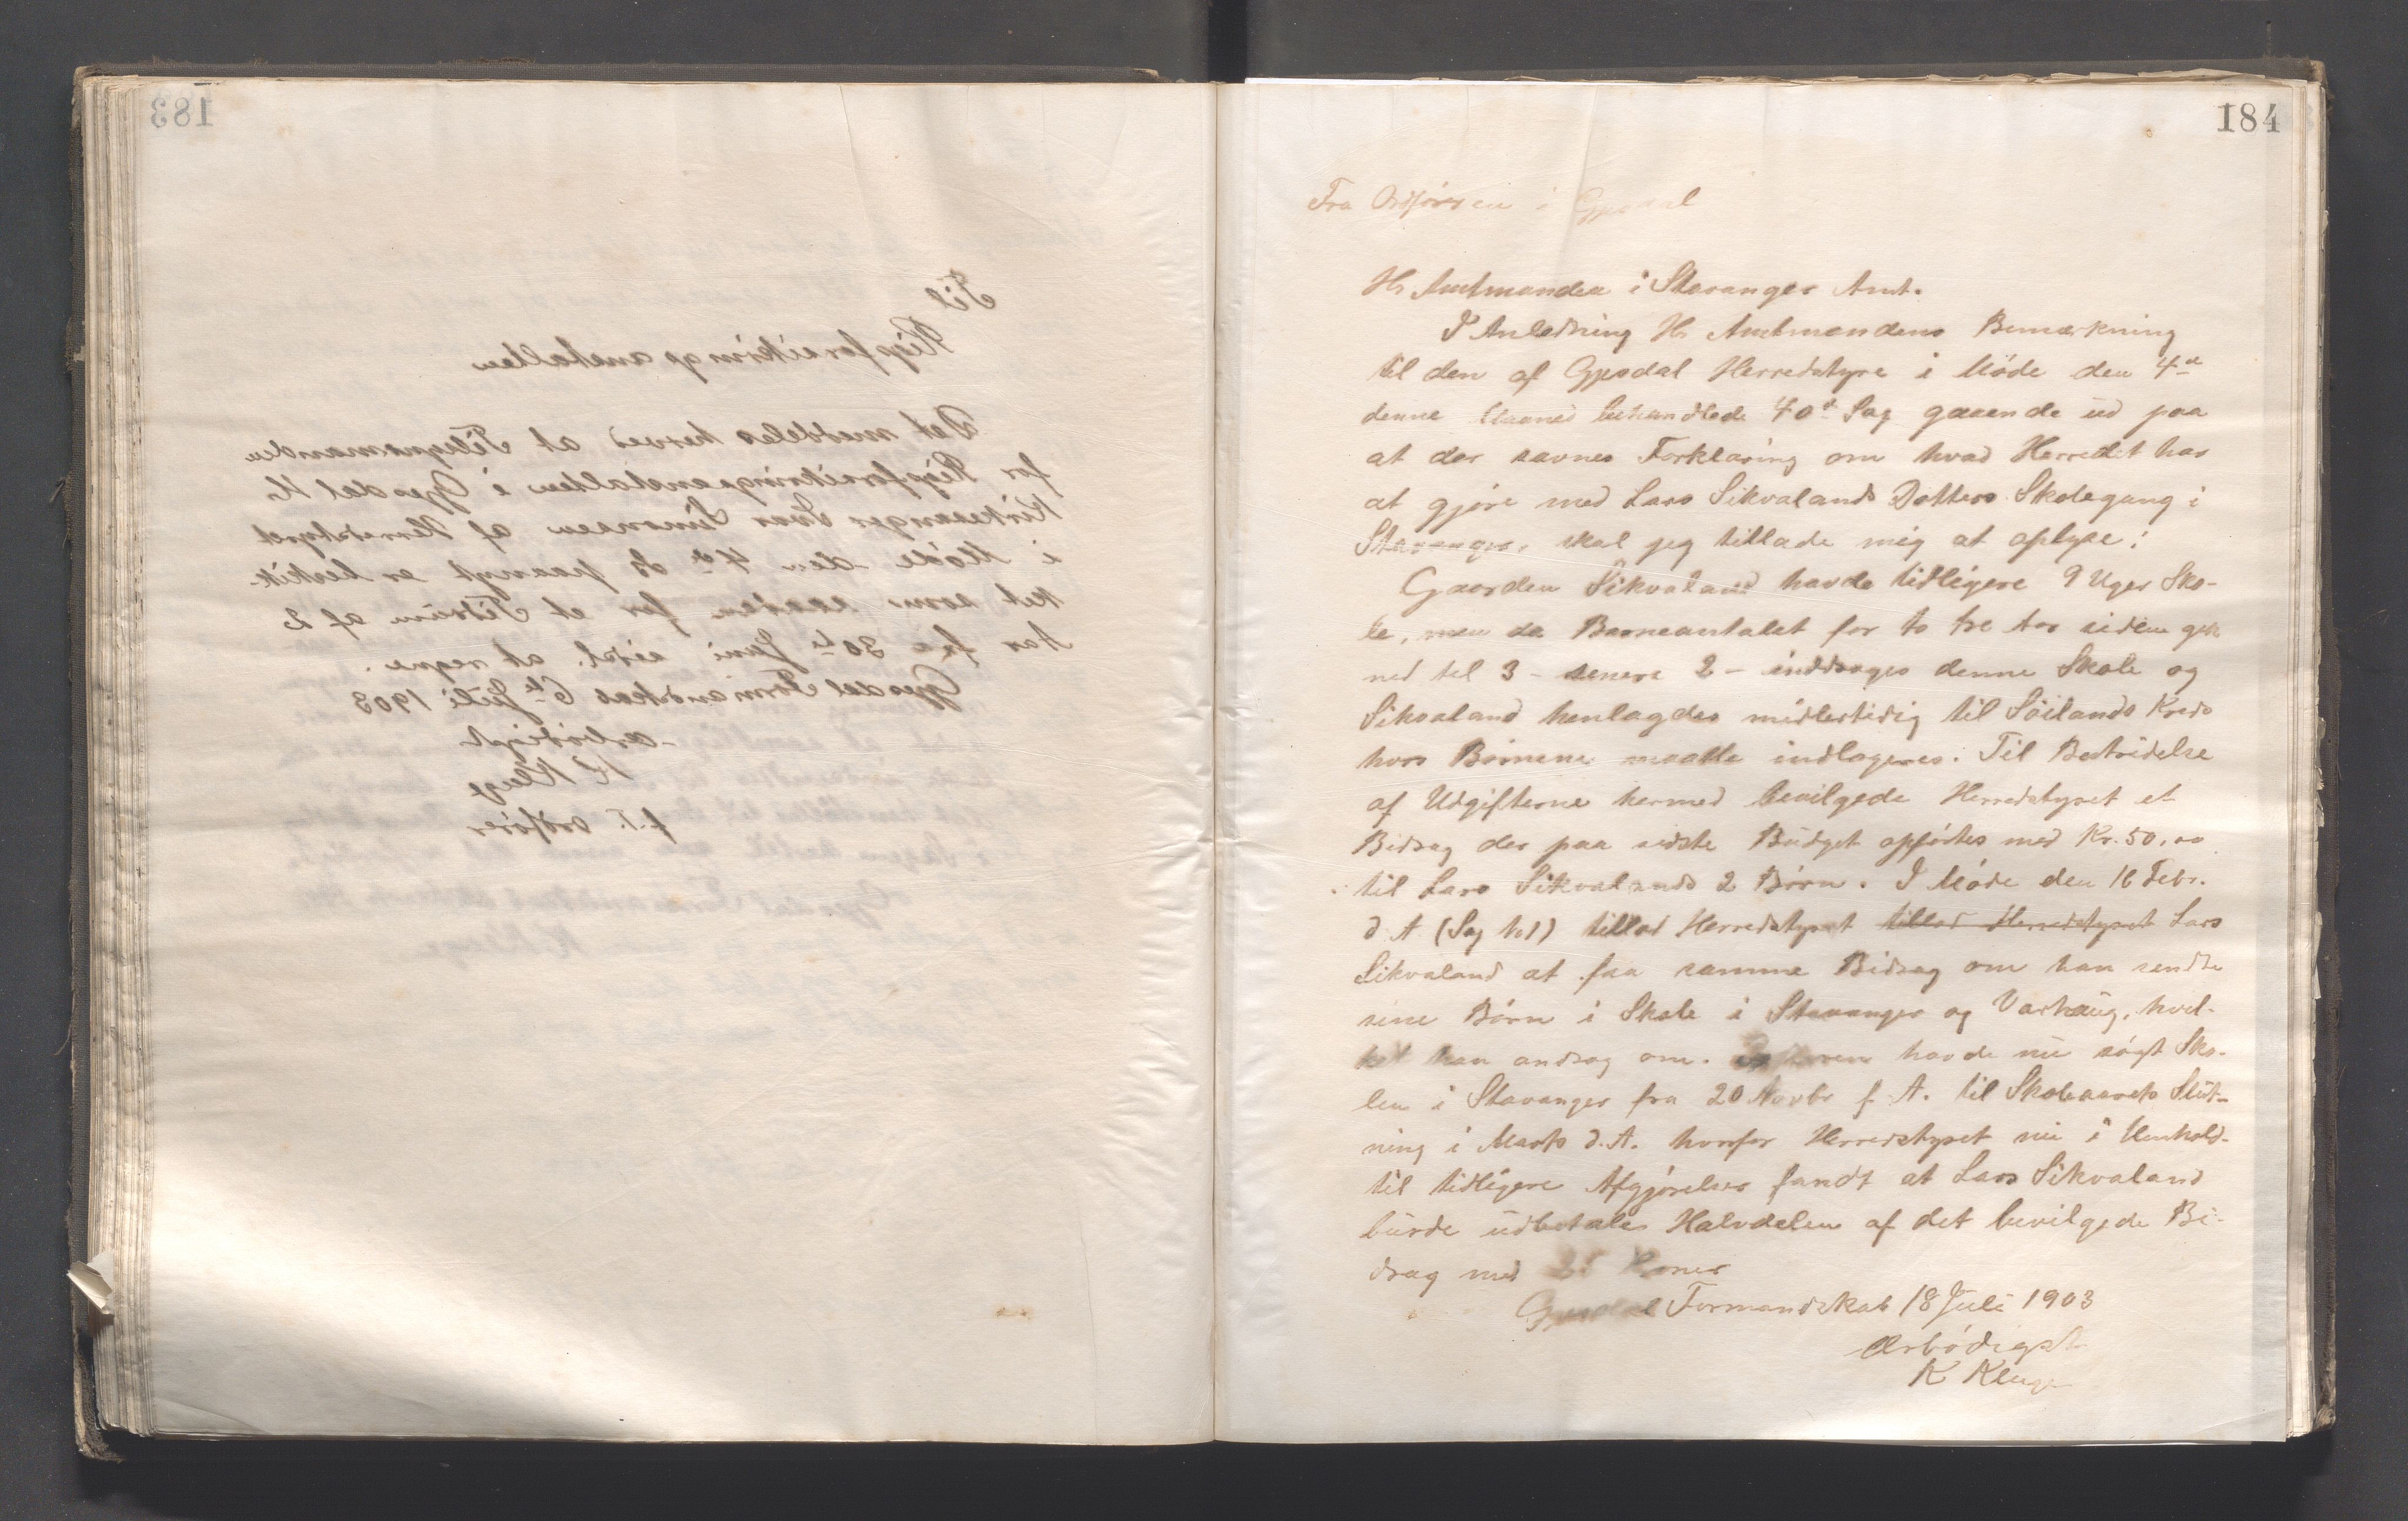 183
Til
Rigsforsikringsanstalten
Det meddeles herved at Tilsynsmanden
for Rigsforsikringsanstalten i Gjesdal Hr.
Kirkesanger Ivar Simonsen af Herredstyret
i Møde den 4de ds paanyt er beskik-
ket som saadan for et Tidsrum af 2
Aar fra 30te Juni sidstl. at regne.
Gjesdal Formandskab 6te Juli 1903
ærbødigst
K Kluge
f.T. ordfører
184
Fra Ordføreren i Gjesdal
Hr Amtmanden i Stavanger Amt.
I Anledning Hr Amtmandens Bemærkning
til den af Gjesdal Herredstyre i Møde den 4de
denne Maaned behandlede 40de Sag gaaende ud paa
at der savnes Forklaring om hvad Herredet har
at gjøre med Lars Sikvalands Datters Skolegang i
Stavanger, skal jeg tillade mig at oplyse:
Gaarden Sikvaland havde tidligere 9 Uger Sko-
le, men da Barneantalet for to tre Aar siden gik
ned til 3 - senere 2 - inddroges denne Skole og
Sikvaland henlagdes midlertidig til Søilands Kreds
hvor Børnene maatte indlogeres. Til Bestridelse
af Udgifterne hermed bevilgede Herredstyret et
Bidrag der paa sidste Budget opførtes med Kr. 50,00
til Lars Sikvalands 2 Børn. I Møde den 16 Febr.
d A (Sag ) tillod Herredstyret tillod Herredstyret Lars
Sikvaland at faa samme Bidrag om han sendte
sine Børn i Skole i Stavanger og Varhaug, hvil-
ket han androg om. havde nu søgt Sko-
len i Stavanger fra 20 Novbr f. A. til Skoleaarets Slut-
ning i Marts d.A. hvorfor Herredstyret nu i Henhold-
til tidligere Afgjørelser fandt at Lars Sikvaland
burde udbetales Halvdelen af det bevilgede Bi-
drag med Kroner
Gjesdal Formandskab 18 Juli 1903
Ærbødigst
K Kluge